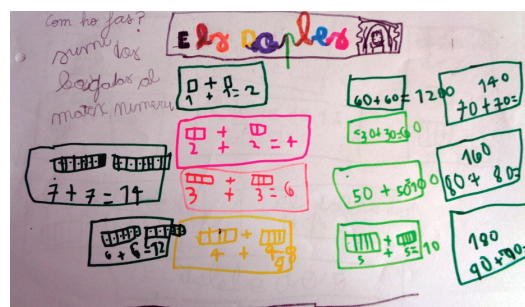 Com ho fas?
sumi dos
begades el
mateix numeru
Els Dobles
1 + 1 = 2
2 + 2 = 4
3 + 3 = 6
4 + 4 = 8
5 + 5 = 10
6 + 6 = 12
7 + 7 = 14
60 + 60 = 1200
30 + 30 = 60
50 + 50 = 100
140
70 + 70 =
160
80 + 80 =
180
90 + 90 =